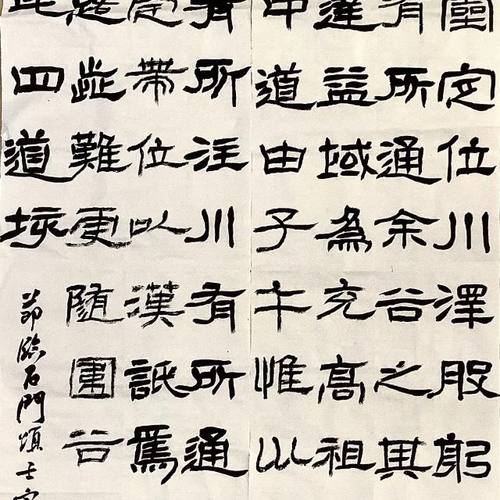 定位川澤股躬
有所通余谷之其
達益域為充高祖
中道由子午惟
所注川有所通
帝位以漢詆焉
難更隨圍谷
此四道垓
節臨石門頌士